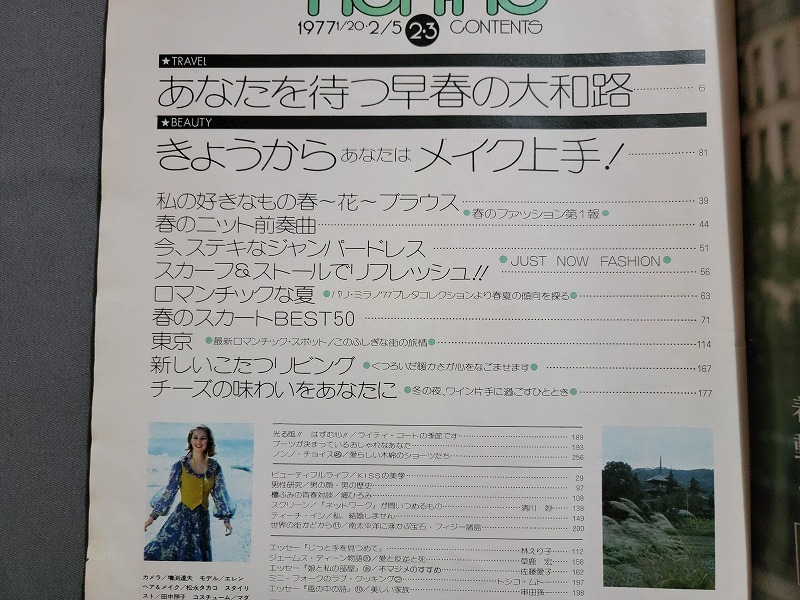 non-no
1977 1/20・2/5 2・3 CONTENTS
★TRAVEL
あなたを待つ早春の大和路 6
★BEAUTY
きょうから あなたは メイク上手! 81
私の好きなもの春〜花〜ブラウス ●春のファッション第1報● 39
春のニット前奏曲 44
今、ステキなジャンパードレス 51
●JUST NOW FASHION●
スカーフ&ストールでリフレッシュ!! 56
ロマンチックな夏 ●パリ・ミラノ'77プレタコレクションより春夏の傾向を探る● 63
春のスカートBEST50 71
東京 ●最新ロマンチック・スポット/このふしぎな街の旅情● 114
新しいこたつリビング ●くつろいだ暖かさが心をなごませます● 167
チーズの味わいをあなたに ●冬の夜、ワイン片手に過ごすひととき● 177
光る風!! はずむ心!!/ライティ・コートの季節です 189
ブーツが決まっているおしゃれなあなた 193
ノンノ・チョイス /愛らしい木綿のショーツたち 256
ビューティフルライフ/KISSの美学 29
男性研究/男の顔・男の歴史 97
檀ふみの青春対談/郷ひろみ 108
スクリーン/「ネットワーク」が問いつめるもの 清川 妙 138
ティーチ・イン/私、結婚しません 149
世界の街かどから /南太平洋に浮かぶ宝石・フィジー諸島 200
エッセー「じっと手を見つめて」 林えり子 112
ジェームス・ディーン物語 /愛と反逆と死 草鹿 宏 158
エッセー「娘と私の部屋」 /不マジメのすすめ 佐藤愛子 162
ミニ・フォークのラブ・クッキング トシコ・ムトー 197
エッセー「風の中の詩」 /美しい家族 串田孫一 198
カメラ/増渕達夫 モデル/エレン
ヘア&メイク/松永タカコ スタイリ
スト/田中照子 コスチューム/マダ